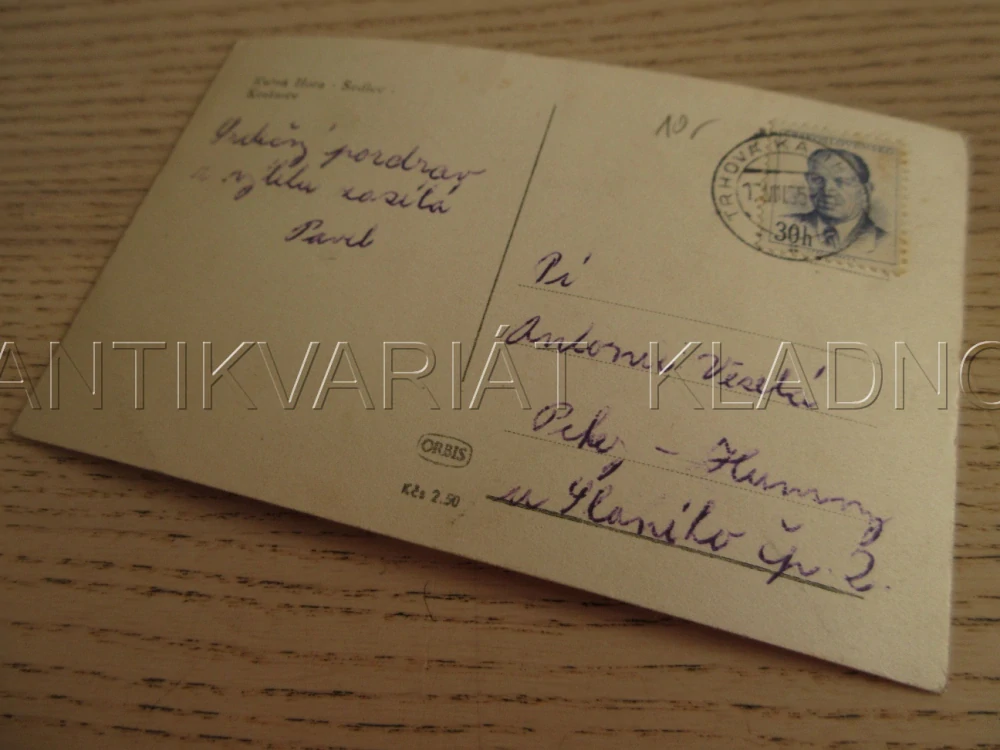 Kutná Hora - Sedlec
Kostnice
Srdečný pozdrav
z výletu zasílá
Pavel
10,-
TRHOVÁ KA
30h
Pí
Antonie Veselá
Peky - Humny
u Slaného čp. 2.
ORBIS
Kčs 2.50
ANTIKVARIÁT KLADNO